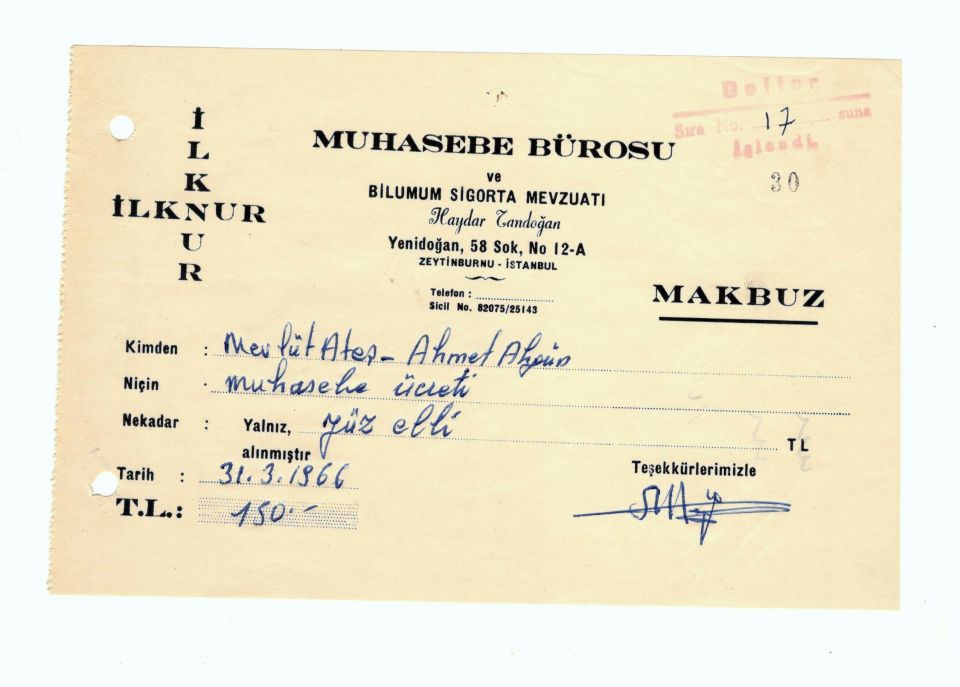 İLKNUR
İLKNUR
MUHASEBE BÜROSU
ve
BİLUMUM SİGORTA MEVZUATI
Haydar Tandoğan
Yenidoğan, 58 Sok, No 12-A
ZEYTİNBURNU - İSTANBUL
Telefon :
Sicil No. 82075/25143
Defter
Sıra No. 17 suna
işlendi.
30
MAKBUZ
Kimden : Mevlüt Ateş - Ahmet Akgün
Niçin : muhasebe ücreti
Nekadar : Yalnız, yüz elli TL
alınmıştır
Tarih : 31.3.1966
Teşekkürlerimizle
T.L.: 150.-